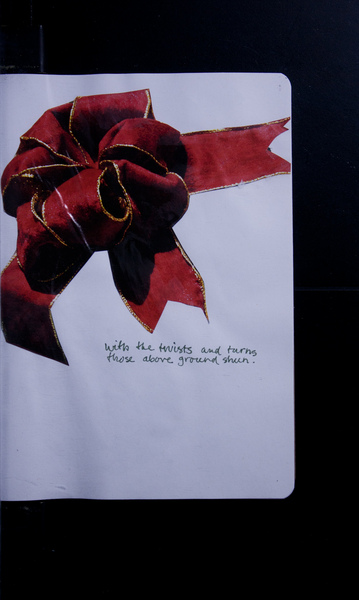 with the twists and turns
those above ground shun.